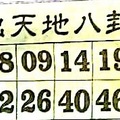 天地八卦
8 09 14 19
2 26 40 46